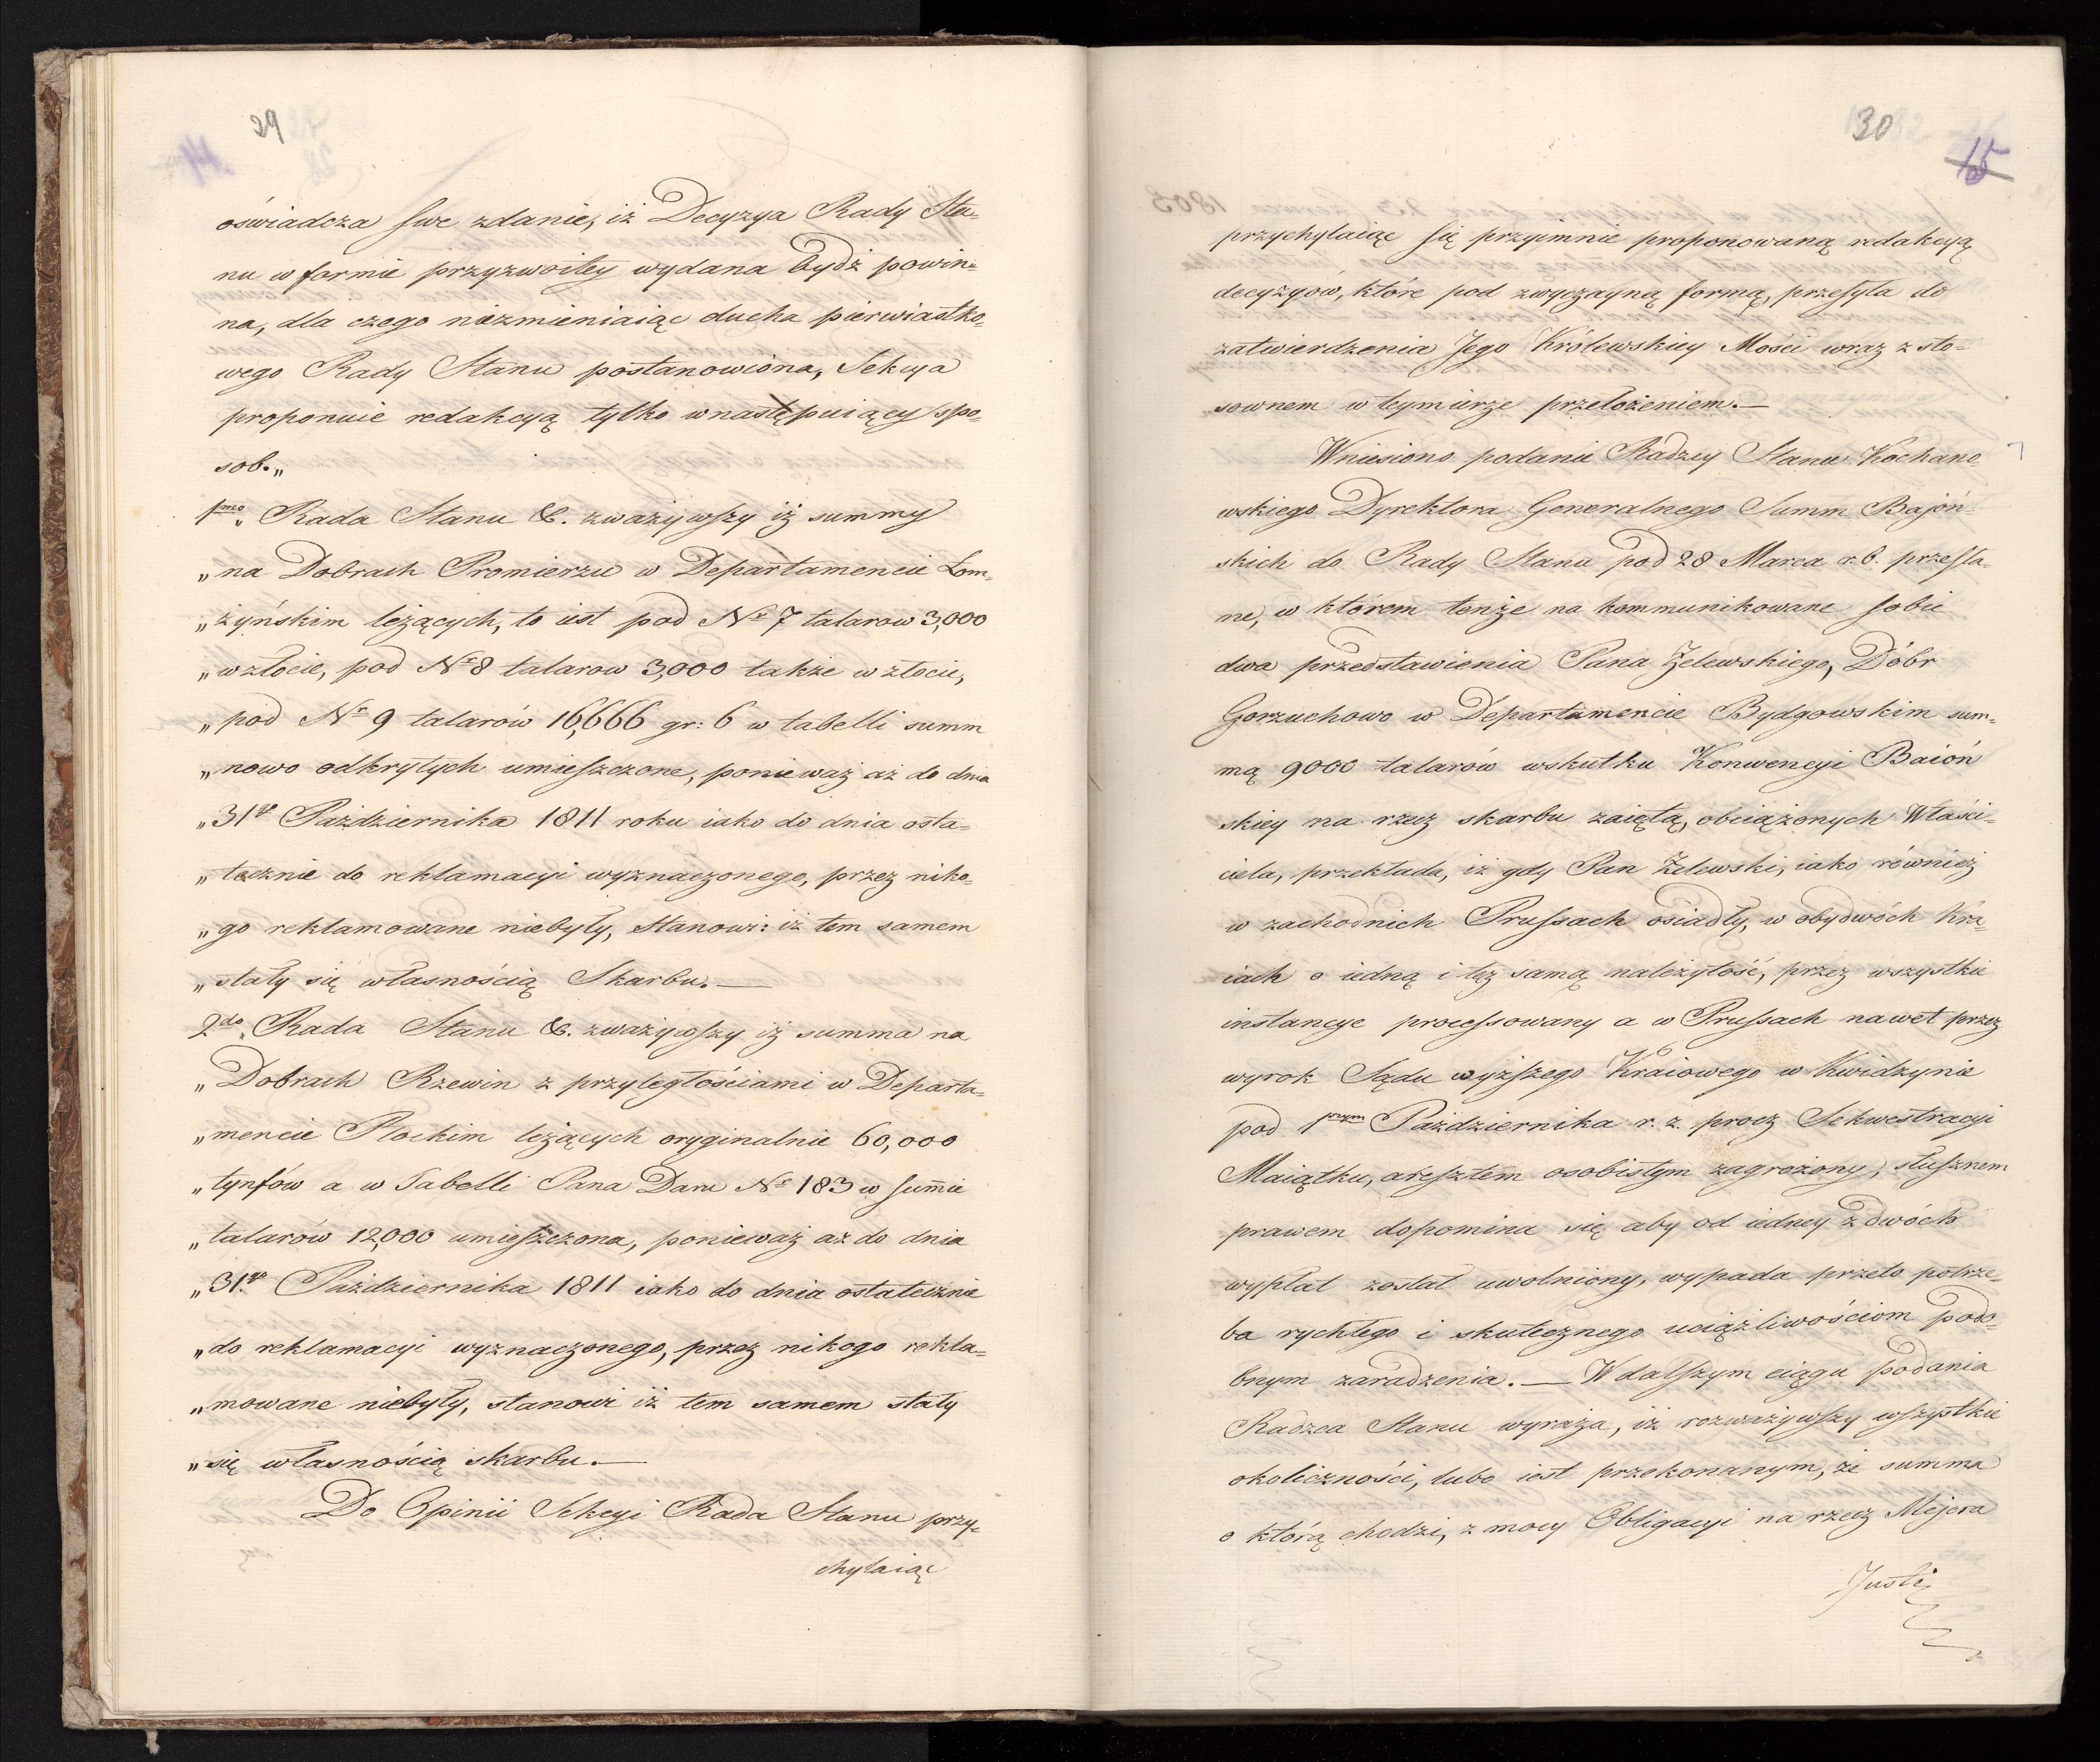 29
oświadcza swe zdanie, iż Decyzya Rady Sta=
nu w formie przyzwoitey wydana bydź powin=
na, dla czego niezmieniaiąc ducha pierwiastko=
wego Rady Stanu postanowiona, Sekcya
proponuie redakcyą tylko w następuiący spo=
sob.„
1mo. Rada Stanu &. zważywszy iż summy
„na Dobrach Promierzu w Departamencie Łom=
„żyńskim leżących, to iest pod No 7 talarow 3,000
„w złocie, pod No 8 talarow 3,000 także w złocie,
„pod No 9 talarów 16,666 gr: 6 w tabelli summ
„nowo odkrytych umieszczone, ponieważ aż do dnia
„31go Października 1811 roku iako do dnia osta=
„tecznie do reklamacyi wyznaczonego, przez niko=
„go reklamowane niebyły, Stanowi: iż tem samem
„stały się własnością Skarbu.—
2do. Rada Stanu &. zważywszy iż summa na
„Dobrach Rzewin z przyległościami w Departa=
„mencie Płockim leżących oryginalnie 60,000
„tynfów a w Tabelli Pana Daru No 183 w summie
„talarów 12,000 umieszczona, ponieważ aż do dnia
„31.go Października 1811 iako do dnia ostatecznie
„do reklamacyi wyznaczonego, przez nikogo rekla=
„mowane niebyły, stanowi iż tem samem stały
„się własnością skarbu.—
Do Opinii Sekcyi Rada Stanu przy=
chylaiąc
30
15
przychylaiąc się przyimnie proponowaną redakcyą
decyzyów, które pod zwyczayną formą, przesyła do
zatwierdzenia Jego Królewskiey Mości wraz z sto=
sownem w teymierze przełożeniem.—
Wniesiono podanie Radzcy Stanu Kochano=
wskiego Dyrektora Generalnego Summ Bajoń=
skich do Rady Stanu pod 28 Marca r.b. przesła=
ne, w którem tenże na kommunikowane sobie
dwa przedstawienia Pana Zelewskiego, Dóbr
Gorzuchowo w Departamencie Bydgowskim sum=
mą 9000 talarów wskutku Konwencyi Baioń
skiey na rzecz skarbu zaiętą, obciążonych Właści=
ciela, przekłada, iż gdy Pan Zelewski, iako również
w zachodnich Prussach osiadły, w obydwóch Kra=
iach o iedną i tęż samą należytość, przez wszystkie
instancye processowany a w Prussach nawet przez
wyrok Sądu wyższego Kraiowego w Kwidzynie
pod 1wszym Października r. z. procz Sekwestracyi
Maiątku, aresztem osobistym zagrożony, słusznem
prawem dopomina się aby od iedney z dwóch
wypłat został uwolniony, wypada przeto potrze=
ba rychłego i skutecznego uciążliwościom podo=
bnym zaradzenia.— W dalszym ciągu podania
Radzca Stanu wyraża, iż rozważywszy wszystkie
okoliczności, lubo iest przekonanym, że summa
o którą chodzi, z mocy Obligacyi na rzecz Mejera